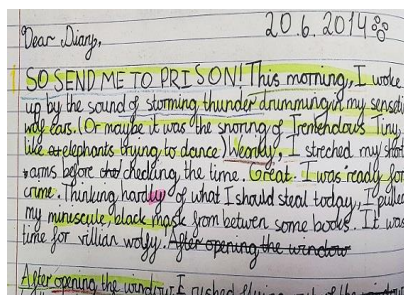 20.6.2014
Dear Diary,
SO SEND ME TO PRISON! This morning, I woke
up by the sound of storming thunder drumming in my sensati
wolf ears. (Or maybe it was the snoring of Tremendous Tiny
like elephants trying to dance) I streched my short
arms before checking the time. Great. I was ready for
crime. Thinking hardly of what I should steal today, I pulled
my minuscule, black mask from between some books. It was
time for villian wolfy. After opening the window
After opening the window I rushed flying out of the